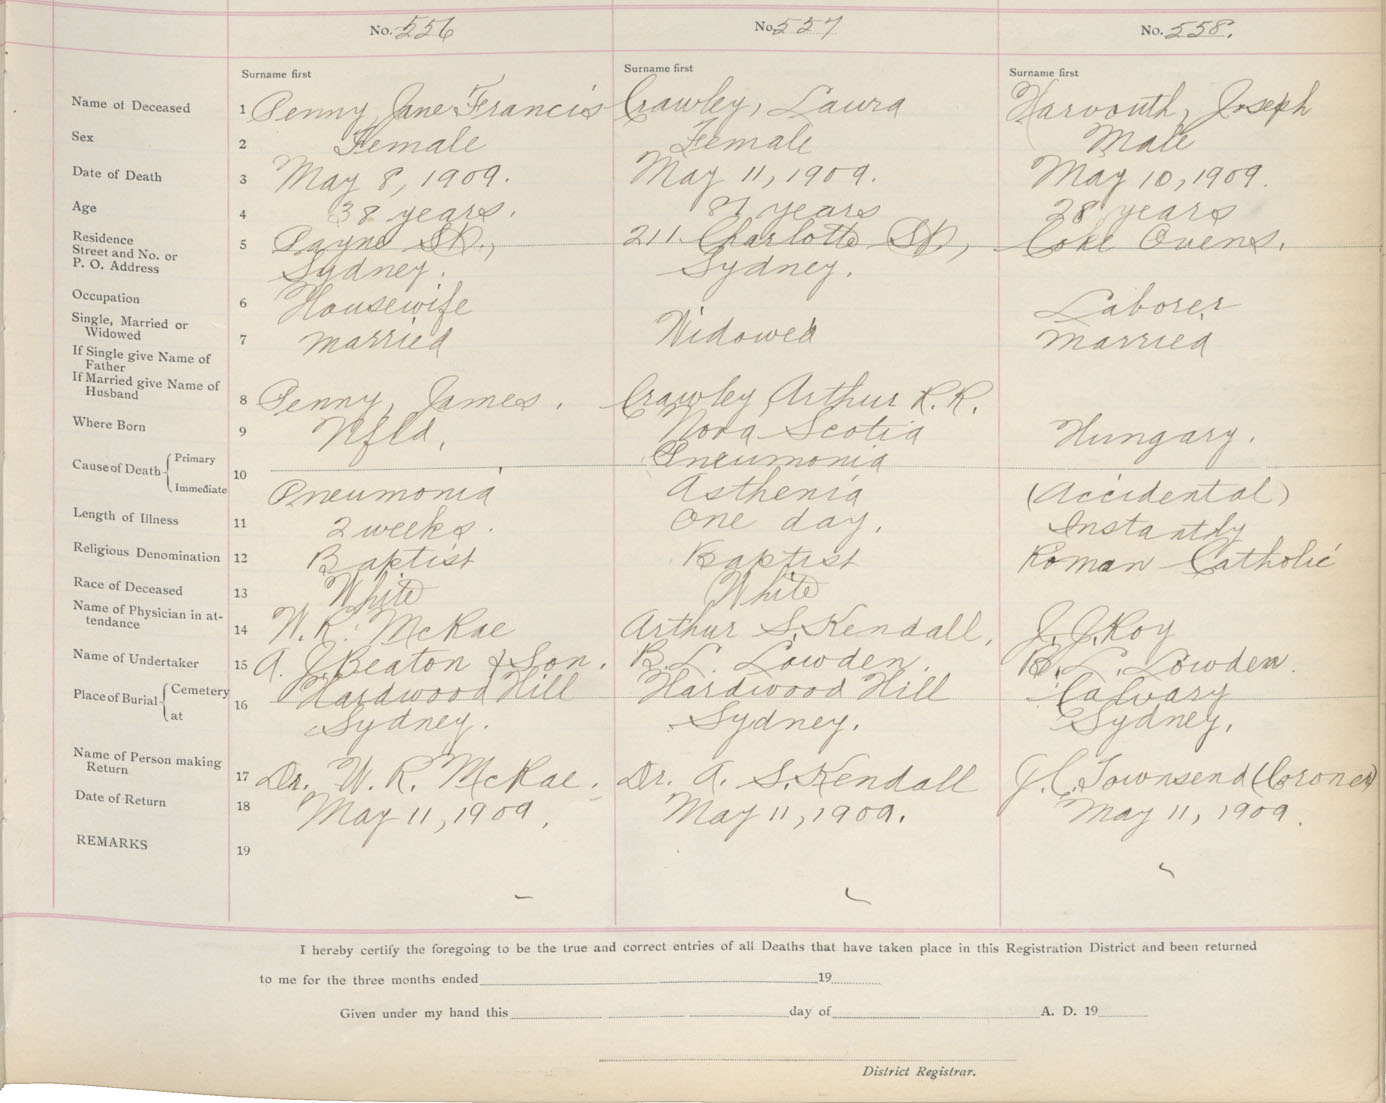 No. 556 No. 557 No. 558.
Surname first Surname first Surname first
Name of Deceased 1 Penny, Jane Francis Crawley, Laura Harvouth, Joseph
Sex 2 Female Female Male
Date of Death 3 May 8, 1909. May 11, 1909. May 10, 1909.
Age 4 38 years. 81 years 28 years
Residence
Street and No. or 5 Payne St., 211 Charlotte St, Coke Ovens.
P. O. Address Sydney. Sydney.
Occupation 6 Housewife Laborer
Single, Married or
Widowed 7 Married Widowed Married
If Single give Name of
Father
If Married give Name of
Husband 8 Penny, James. Crawley Arthur R.R.
Where Born 9 Nfld. Nova Scotia Hungary.
Cause of Death Primary 10 Pneumonia
Immediate Pneumonia Asthenia (Accidental)
Length of Illness 11 2 weeks. One day. Instantly
Religious Denomination 12 Baptist Baptist Roman Catholic
Race of Deceased 13 White White
Name of Physician in at-
tendance 14 W. R. McRae Arthur S. Kendall, J. J. Roy
Name of Undertaker 15 A. J. Beaton & Son. B. L. Lowden. B. L. Lowden.
Place of Burial Cemetery 16 Hardwood Hill Hardwood Hill Calvary
at Sydney. Sydney. Sydney.
Name of Person making
Return 17 Dr. W. R. McRae. Dr. A. S. Kendall J. C. Townsend (Coroner)
Date of Return 18 May 11, 1909, May 11, 1909. May 11, 1909.
REMARKS 19
I hereby certify the foregoing to be the true and correct entries of all Deaths that have taken place in this Registration District and been returned
to me for the three months ended 19
Given under my hand this day of A. D. 19
District Registrar.